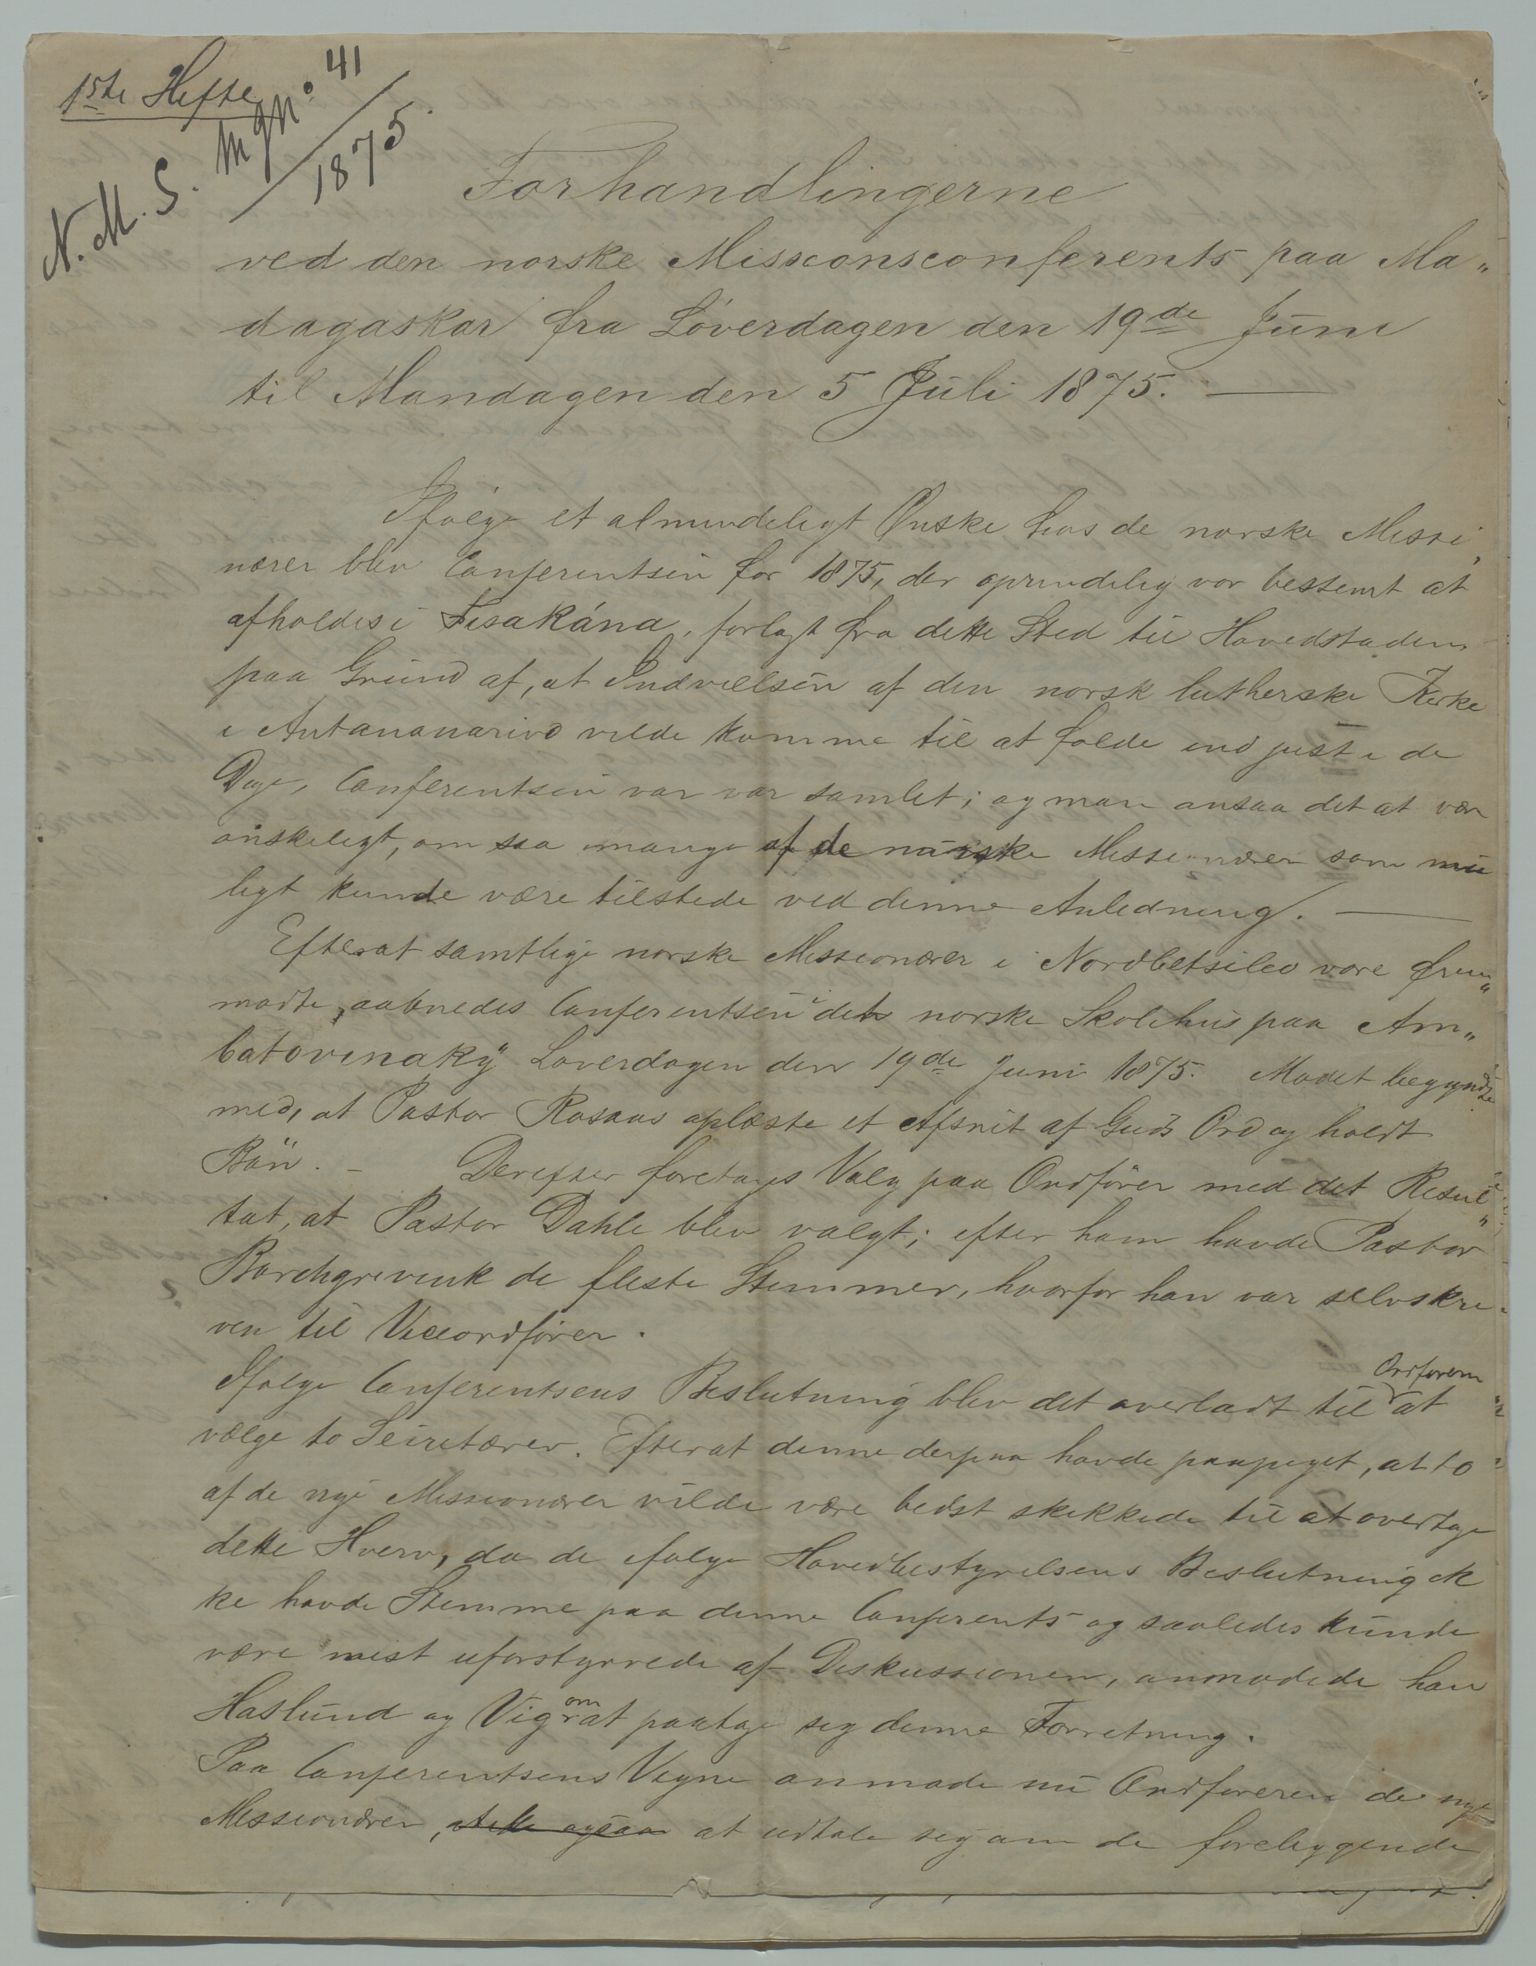 1ste Hefte
N. M. S. Mgn° 41
1875.
Forhandlingerne
ved den norske Missionsconferents paa Ma„
dagaskar fra Løverdagen den 19de Juni
til Mandagen den 5 Juli 1875. —
Ifølge et almindeligt Ønske hos de norske Missi„
nærer blev Conferentsen for 1875, der oprindelig var bestemt at
afholdes i Fisakána, forlagt fra dette Sted til Hovedstaden
paa Grund af, at Indvielsen af den norsk lutherske Kirke
i Antananarivo vilde komme til at falde ind just i de
Dage, Conferentsen var var samlet; og man ansaa det at være
ønskeligt, om saa mange af de norske Missionærer som mu
ligt kunde være tilstede ved denne Anledning. —
Efterat samtlige norske Missionærer i Nordbetsileo vare frem„
mødte, aabnedes Conferentsen i det norske Skolehus paa Am„
batovinaky Løverdagen den 19de Juni 1875. Mødet begyndte
med, at Pastor Rosaas oplæste et Afsnit af Guds Ord og holdt
Bøn. – Derefter foretages Valg paa Ordfører med det Resul„
tat, at Pastor Dahle blev valgt; efter ham havde Pastor
Borchgrevink de fleste Stemmer, hvorfor han var selvskre„
ven til Viceordfører.
Ifølge Conferentsens Beslutning blev det overladt til Ordføreren at
vælge to Secretærer. Efterat denne derpaa havde paapeget, at to
af de nye Missionærer vilde være bedst skikkede til at overtage
dette Hverv, da de ifølge Hovedbestyrelsens Beslutning ik
ke havde Stemme paa denne Conferents og saaledes kunde
være mest uforstyrrede af Diskussionen, anmodede han
Haslund og Vig om at paatage sig denne Forretning.
Paa Conferentsens Vegne anmode nu Ordføreren de nye
Missionærer, at udtale sig om de foreliggende